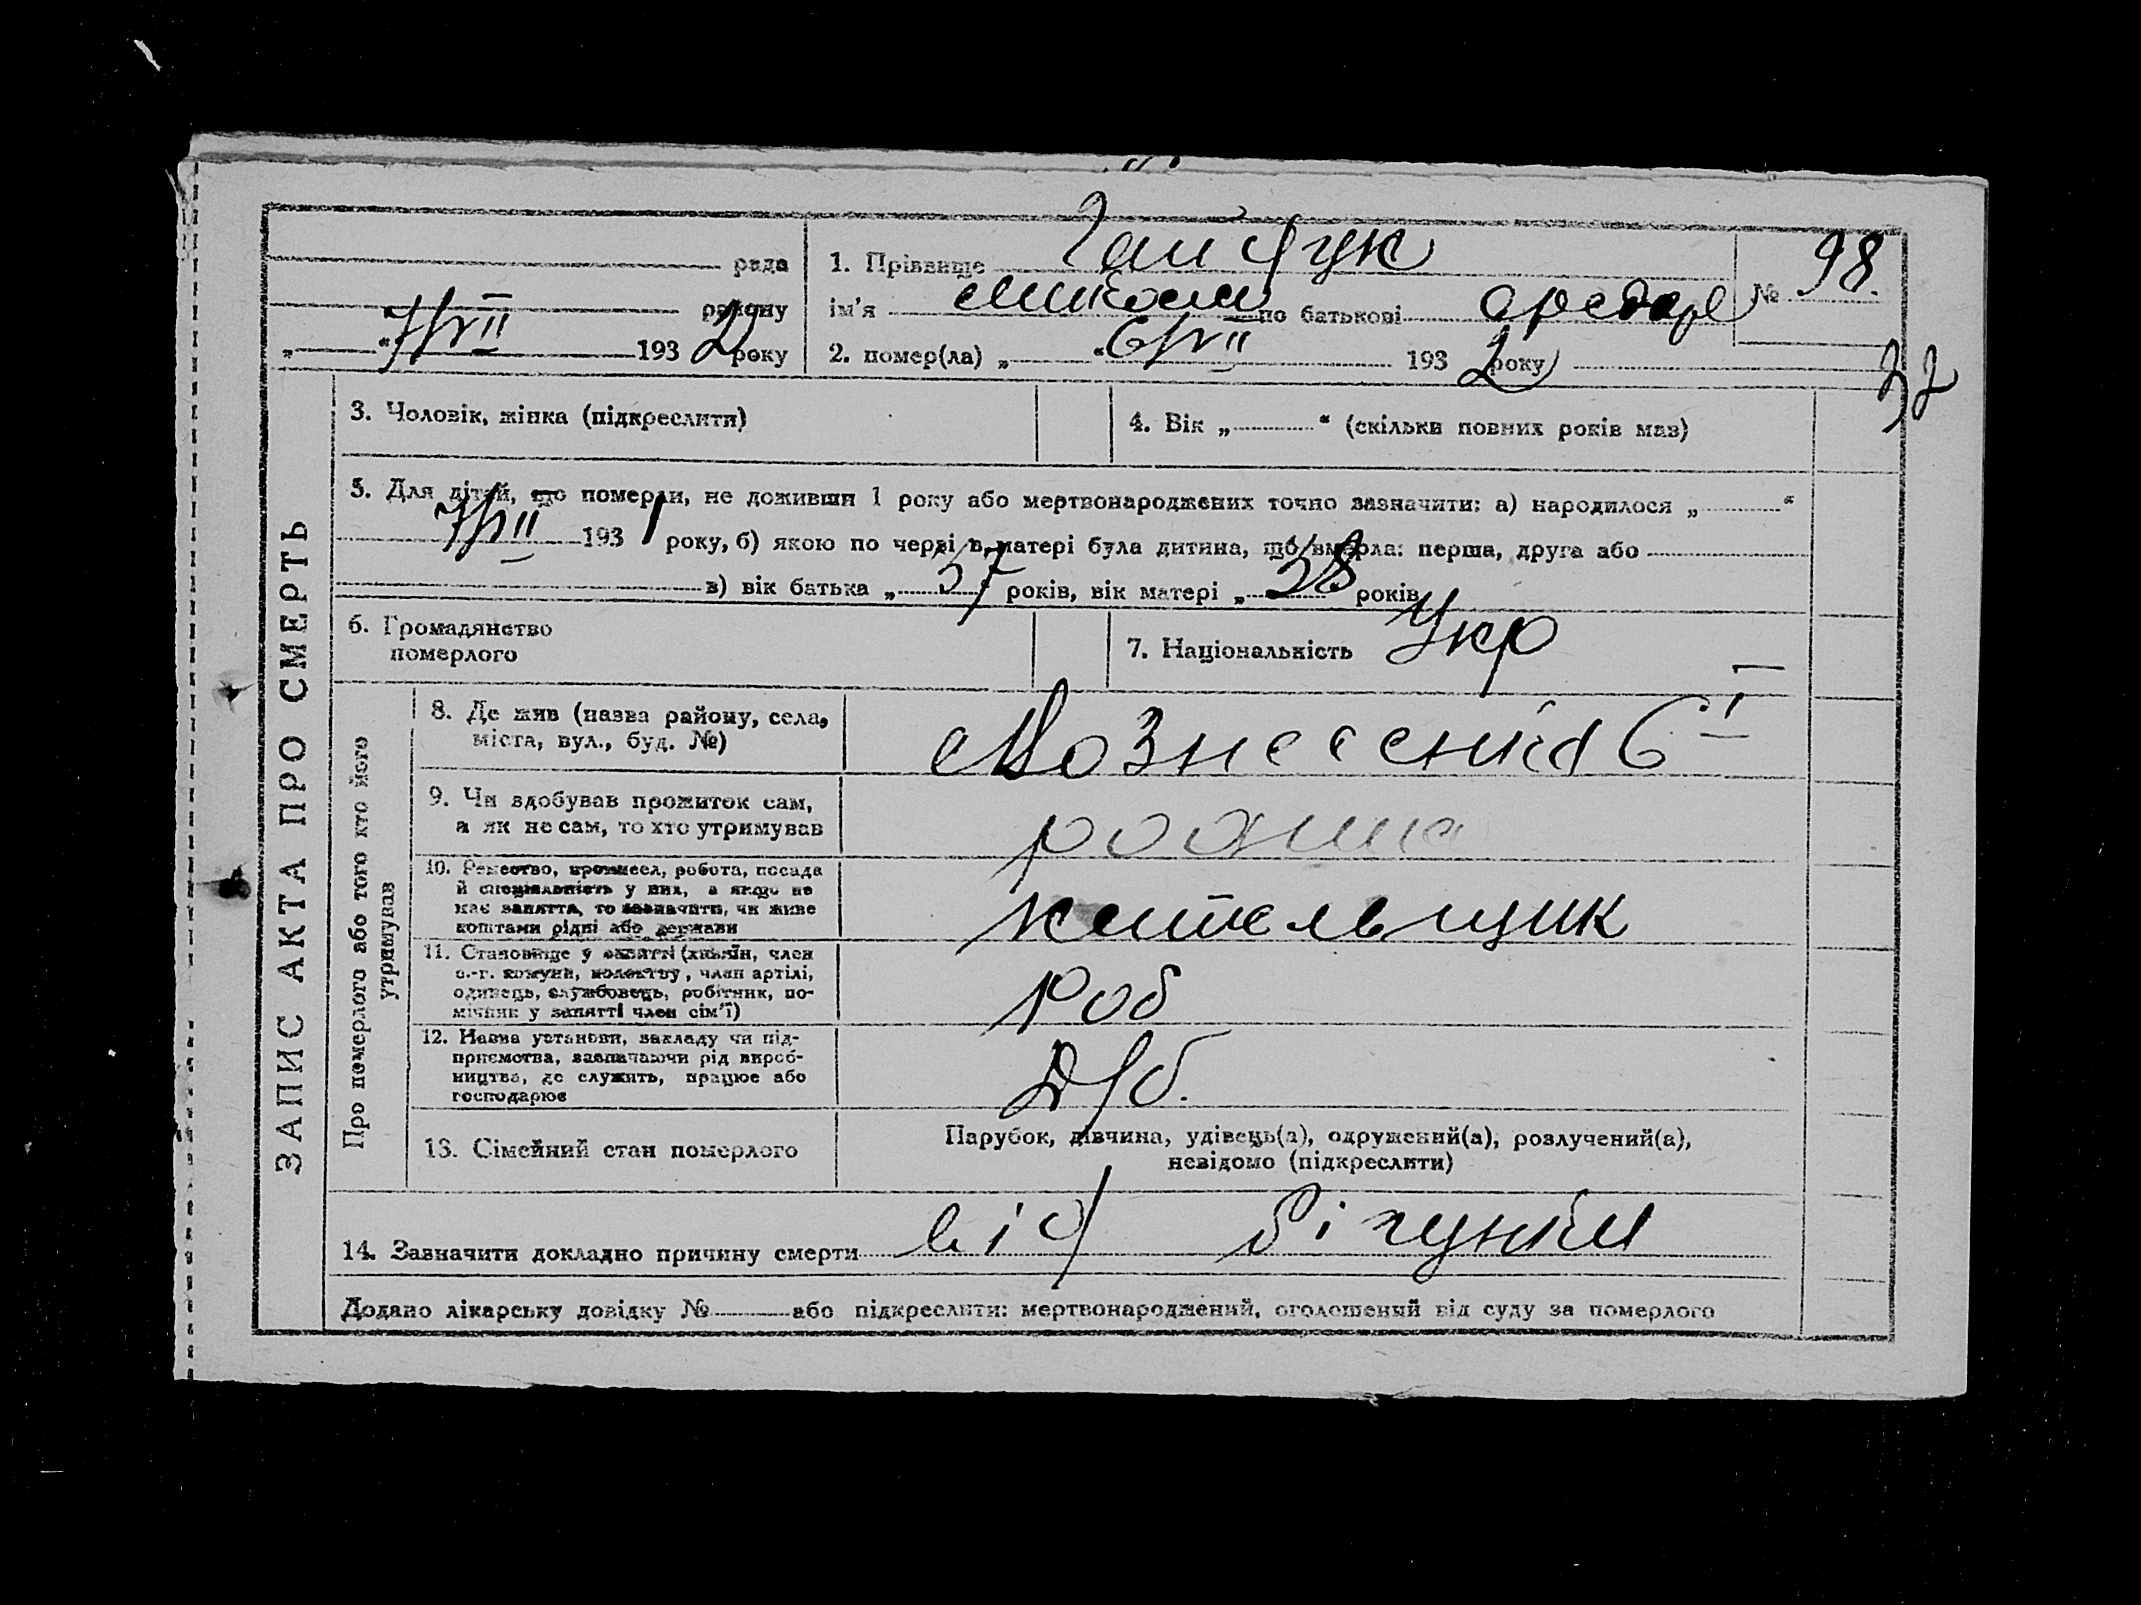 ЗАПИС АКТА ПРО СМЕРТЬ
рада
району
„ “ 7/VII 1932 року
1. Прізвище Гайчук
ім'я Микола по батькові Федор
№ 98.
2. помер(ла) „ “ 6/VII 1932 року
32
3. Чоловік, жінка (підкреслити)
4. Вік „ “ (скільки повних років мав)
5. Для дітей, що померли, не доживши 1 року або мертвонароджених точно зазначити: а) народилося „ “
7/VII 1931 року, б) якою по черзі в матері була дитина, що вмерла: перша, друга або
в) вік батька „37“ років, вік матері „38“ років
6. Громадянство
померлого
7. Національність Укр
Про померлого або того кто його
утримував
8. Де жив (назва району, села,
міста, вул., буд. №)
9. Чи здобував прожиток сам,
а як не сам, то хто утримував
родина
10. Ремество, промисел, робота, посада
й спеціяльність у них, а якщо не
має заняття, то зазначити, чи живе
коштами рідні або держави
11. Становище у занятті (хазяїн, член
с.-г. комуни, колектву, член артілі,
одинець, службовець, робітник, по-
мічник у занятті член сім'ї)
Роб
12. Назва установи, закладу чи під-
приємства, зазначаючи рід вироб-
ництва, де служить, працює або
господарює
13. Сімейний стан померлого
Парубок, дівчина, удівець(а), одружений(а), розлучений(а),
невідомо (підкреслити)
14. Зазначити докладно причину смерти від бігунки
Додано лікарську довідку № або підкреслити: мертвонароджений, оголошений від суду за померлого